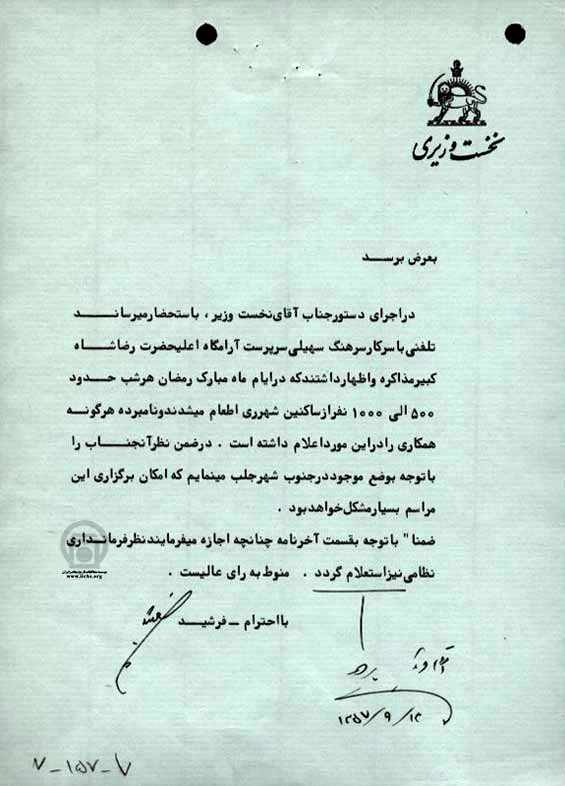 نخست وزیری
بعرض برسد
دراجرای دستورجناب آقای نخست وزیر ، باستحضارمیرساند
تلفنی باسرکارسرهنگ سهیلی سرپرست آرامگاه اعلیحضرت رضاشاه
کبیرمذاکره واظهارداشتندکه درایام ماه مبارک رمضان هرشب حدود
۵۰۰ الی ۱۰۰۰ نفرازساکنین شهرری اطعام میشدندونامبرده هرگونه
همکاری رادراین مورداعلام داشته است . درضمن نظرآنجناب را
باتوجه بوضع موجوددرجنوب شهرجلب مینمایم که امکان برگزاری این
مراسم بسیارمشکل خواهدبود .
ضمنا" باتوجه بقسمت آخرنامه چنانچه اجازه میفرمایندنظرفرمانداری
نظامی نیزاستعلام گردد . منوط به رای عالیست .
بااحترام ـ فرشید
۱۳۵۷/۹/۱۴
۷-۱۵۷-۷
www.iichs.org